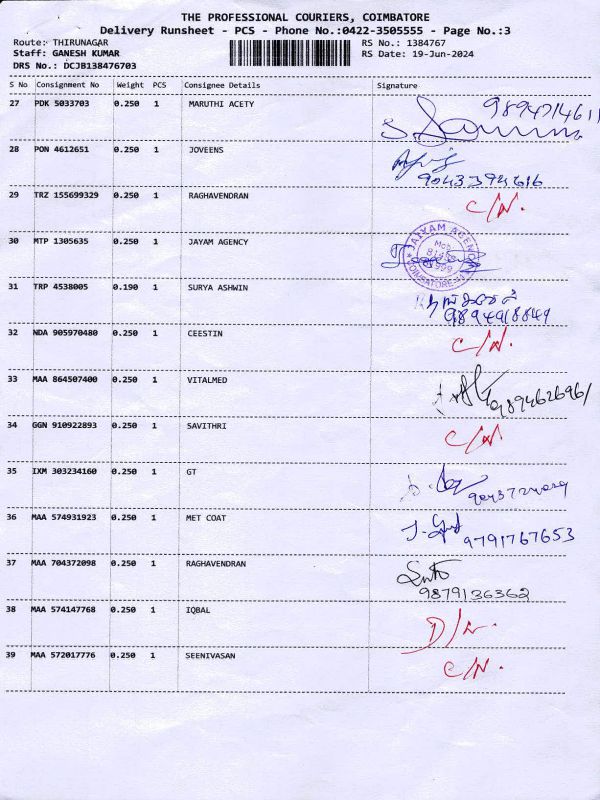 THE PROFESSIONAL COURIERS, COIMBATORE
Delivery Runsheet - PCS - Phone No.:0422-3505555 - Page No.:3
Route: THIRUNAGAR RS No.: 1384767
Staff: GANESH KUMAR RS Date: 19-Jun-2024
DRS No.: DCJB138476703
S No Consignment No Weight PCS Consignee Details Signature
27 PDK 5033703 0.250 1 MARUTHI ACETY
28 PON 4612651 0.250 1 JOVEENS
9043394616
29 TRZ 155699329 0.250 1 RAGHAVENDRAN C/N.
30 MTP 1305635 0.250 1 JAYAM AGENCY
JAIYAM AGENCY
Mob
COIMBATORE
31 TRP 4538005 0.190 1 SURYA ASHWIN
9894918849
32 NDA 905970480 0.250 1 CEESTIN C/N.
33 MAA 864507400 0.250 1 VITALMED
9894626961
34 GGN 910922893 0.250 1 SAVITHRI C/N
35 IXM 303234160 0.250 1 GT
36 MAA 574931923 0.250 1 MET COAT
9791767653
37 MAA 704372098 0.250 1 RAGHAVENDRAN
9879136362
38 MAA 574147768 0.250 1 IQBAL D/L.
39 MAA 572017776 0.250 1 SEENIVASAN C/N.